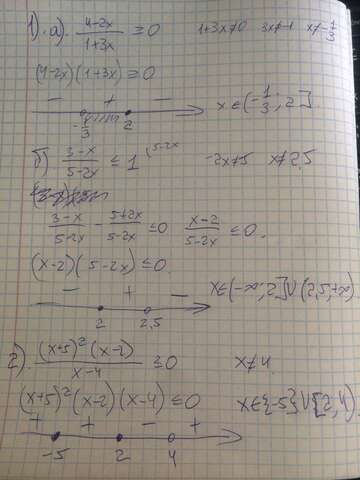 1). а). (4-2x)/(1+3x) ≥ 0    1+3x≠0    3x≠-1    x≠-1/3
(4-2x)(1+3x) ≥ 0
-    +    -
-1/3    2    x∈(-1/3; 2].
б) (3-x)/(5-2x) ≤ 1 (5-2x    -2x≠5    x≠2,5
(3-x)/(5-2x) - (5+2x)/(5-2x) ≤ 0    (x-2)/(5-2x) ≤ 0.
(x-2)(5-2x) ≤ 0.
-    +    -    x∈(-∞; 2]∪(2,5; +∞)
2    2,5
2). ((x+5)²(x-2))/(x-4) ≥ 0    x≠4.
(x+5)²(x-2)(x-4) ≤ 0    x∈{-5}∪[2; 4)
+    +    -    +
-5    2    4